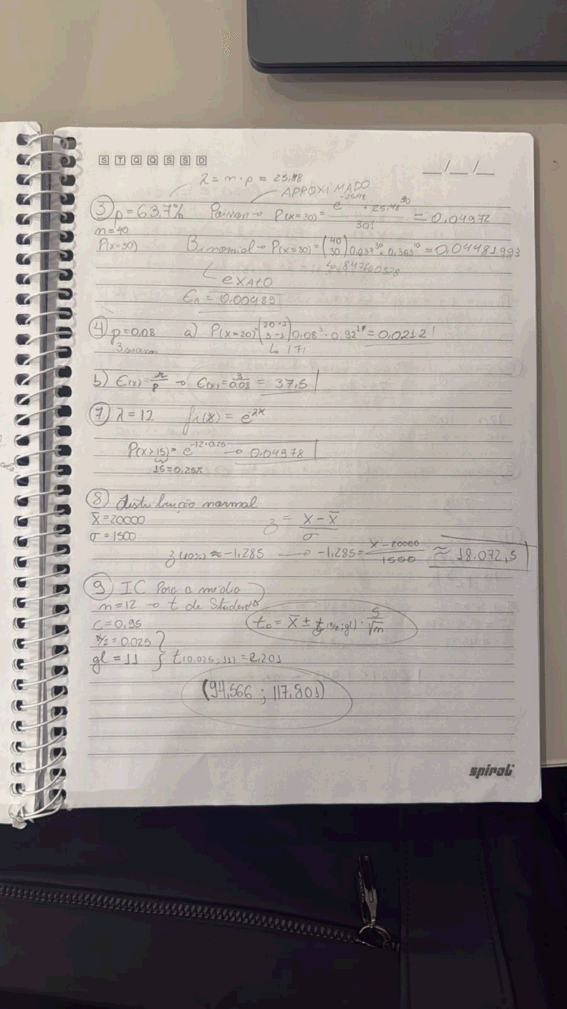 S T Q Q S S D
__/__/__
λ = n · p = 25,48
APROXIMADO
③ p = 63,7% Poisson → P(x=30) = e^-25,48 · 25,48^30 / 30! = 0,04972
n = 40
P(x=30) Binomial → P(x=30) = (40 30) 0,637^30 · 0,363^10 = 0,04481993
exato
= 0,00489
④ p = 0,08 a) P(X=20) = (20-1 3-1) 0,08^3 · 0,92^17 = 0,0212
↳ 171
b) E(x) = r/p → E(x) = 3/0,08 = 37,5
⑦ λ = 12
P(x>15) = e^-12·0,25 → 0,04978
15 = 0,25h
⑧ distribuição normal
X̄ = 20000 z = X - X̄ / σ
σ = 1500
z(10%) ≈ -1,285 → -1,285 = X - 20000 / 1500 ≈ 18.072,5
⑨ IC Para a média
n = 12 → t de Student
C = 0,95 = X̄ ± t(α/2; gl) · S/√n
α/2 = 0,025
gl = 11 } t(0,025; 11) = 2,201
(94,566 ; 117,801)
spiral